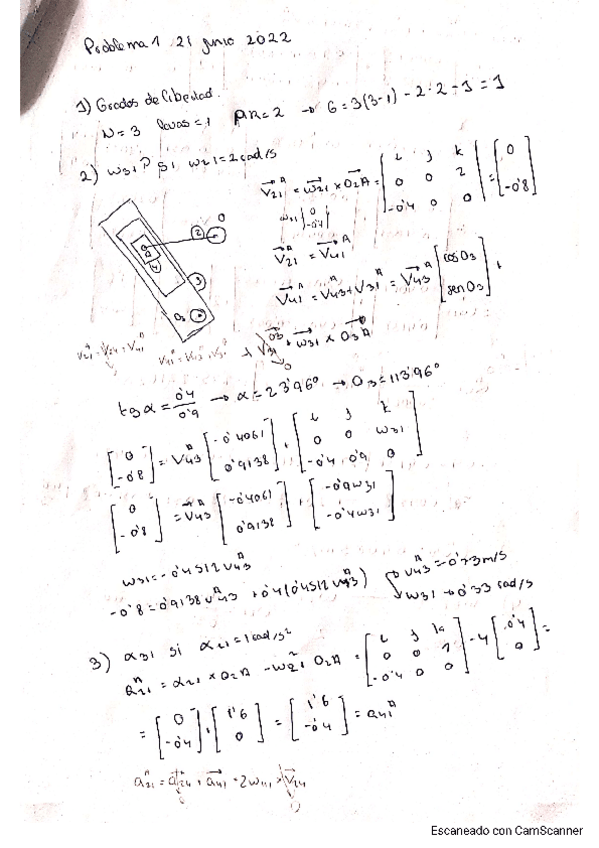 Problema 1 21 junio 2022
1) Grados de libertad.
N=3 levas=1 PR=2 → G=3(3-1)-2·2-1=1
2) ω31? si ω21=2rad/s
V21^A = ω21 × O2A = [i j k; 0 0 2; -0'4 0 0] = [0; -0'8]
V21^A = V41^A
V41^A = V43^A + V31^A = V43^A [cos θ3; sen θ3] +
+ V31^O3 + ω31 × O3A
2 O
4
3
O3
V21^A = V24^A + V41^A
tg α = 0'4/0'9 → α = 23'96° → θ3 = 113'96°
[0; -0'8] = V43^A [-0'4061; 0'9138] + [i j k; 0 0 ω31; -0'4 0'9 0]
[0; -0'8] = V43^A [-0'4061; 0'9138] + [-0'9ω31; -0'4ω31]
ω31 = -0'4512 V43^A
-0'8 = 0'9138 V43^A + 0'4(0'4512 V43^A)
V43^A = -0'73 m/s
ω31 → 0'33 rad/s
3) α31 si α21 = 1 rad/s²
a21^A = α21 × O2A - ω21² O2A = [i j k; 0 0 1; -0'4 0 0] - 4 [-0'4; 0] =
= [0; -0'4] + [1'6; 0] = [1'6; -0'4] = a41^A
a21^A = a24^A + a41^A + 2ω41 × V24
Escaneado con CamScanner